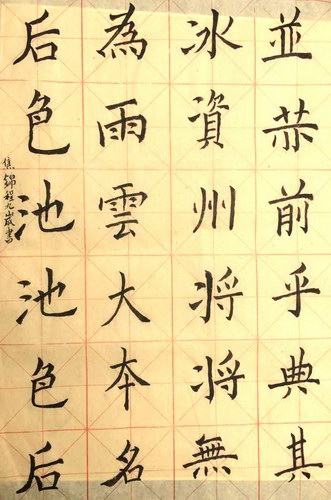 並恭前乎典其
冰資州將將無
為雨雲大本名
后色池池色后
焦錦程九歲書